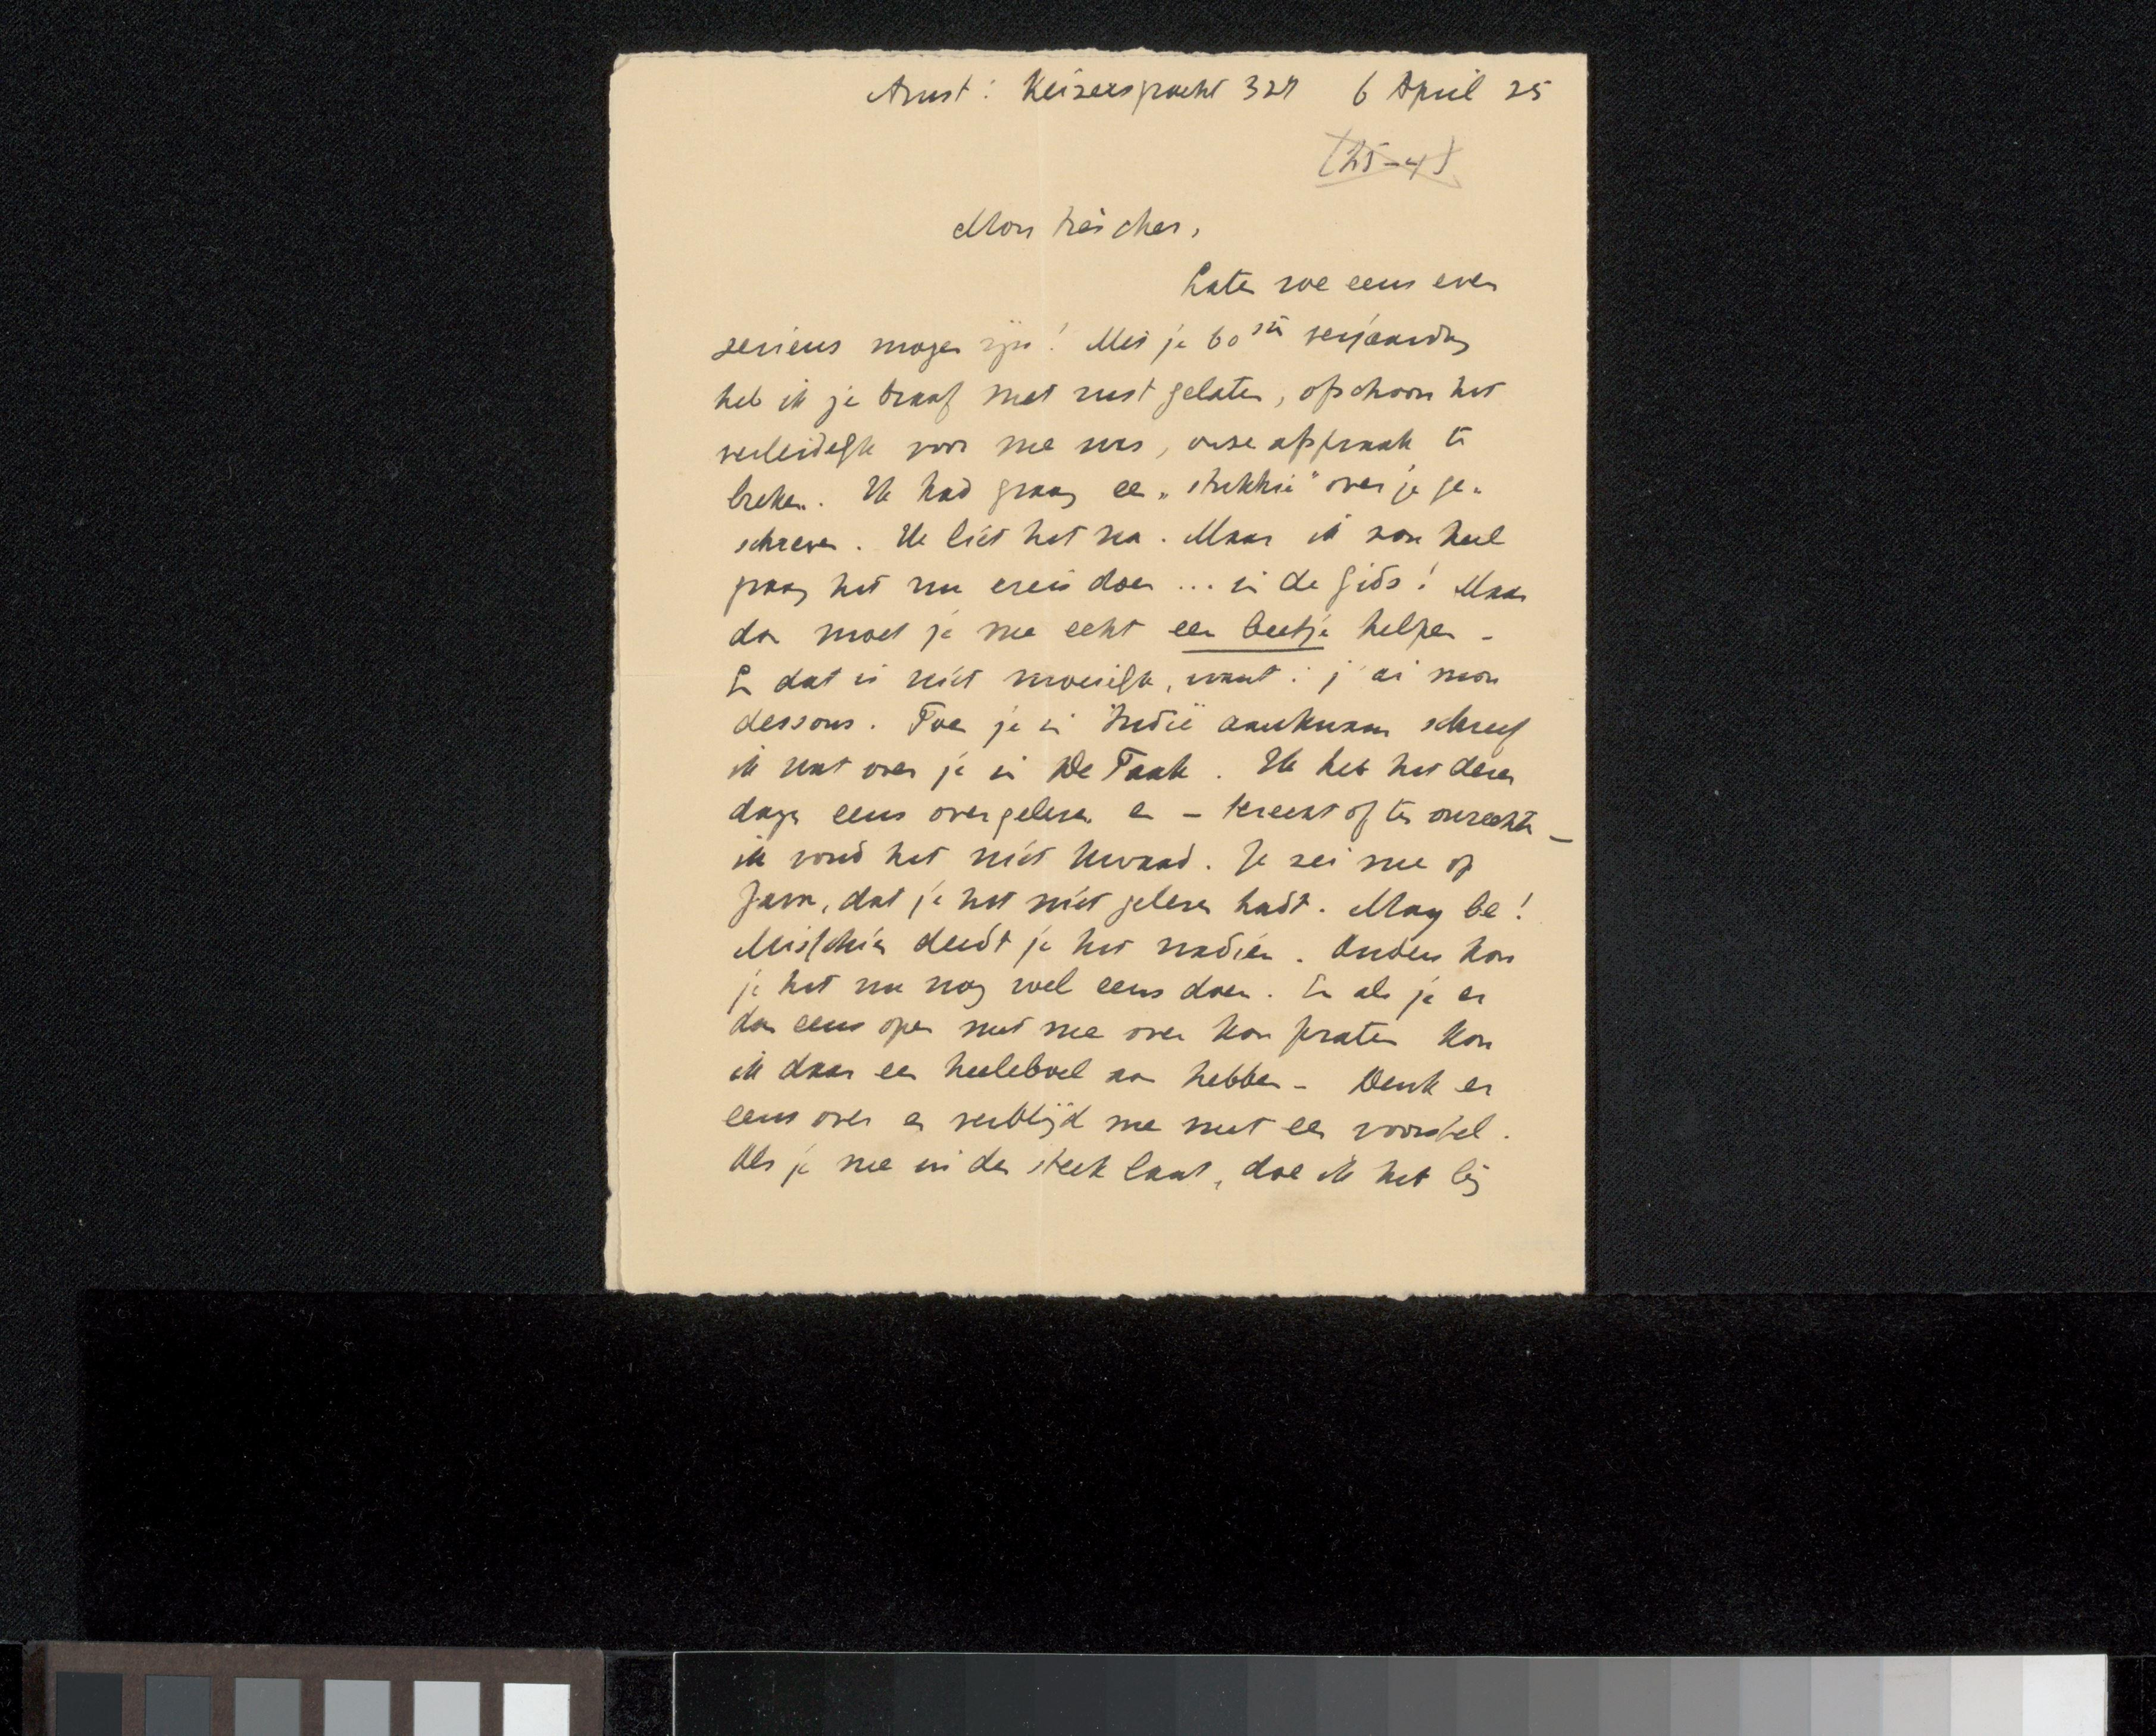 Amst: Keizersgracht 327 6 April 25
[25-4]
Mon très cher,
Laten we eens even
serieus mogen zijn! Met je 60ste verjaardag
heb ik je braaf met rust gelaten, ofschoon het
verleidelijk voor me was, onze afspraak te
breken. Ik had graag een „stukkie" over je ge-
schreven. Ik liet het na. Maar ik zou heel
graag het nu ereis doen ... in de Gids! Maar
dan moet je me echt een beetje helpen -
En dat is niet moeielijk, want: j'ai mon
dessous. Toen je in Indië aankwam schreef
ik wat over je in De Taak. Ik heb het dezer
dagen eens overgelezen en - terecht of ten onrechte -
ik vond het niet kwaad. Je zei me op
Java, dat je het niet gelezen hadt. May be!
Misschien deedt je het nadien. Anders kon
je het nu nog wel eens doen. En als je er
dan eens open met me over kon praten kon
ik daar een heeleboel aan hebben - Denk er
eens over en verblijd me met een voorstel.
Als je me in den steek laat, doe ik het bij